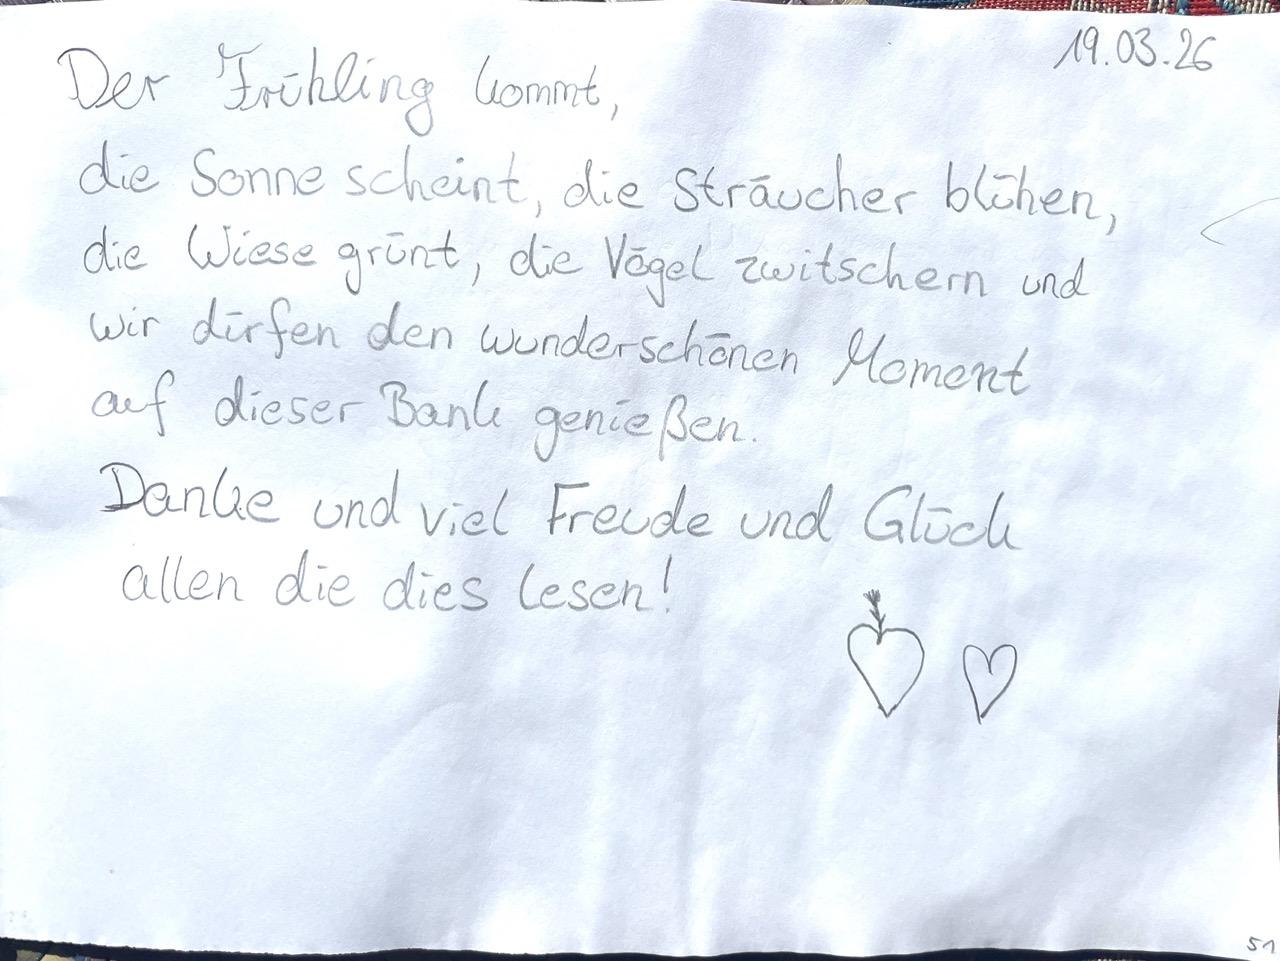 19.03.26
Der Frühling kommt,
die Sonne scheint, die Sträucher blühen,
die Wiese grünt, die Vögel zwitschern und
wir dürfen den wunderschönen Moment
auf dieser Bank genießen.
Danke und viel Freude und Glück
allen die dies lesen!
51